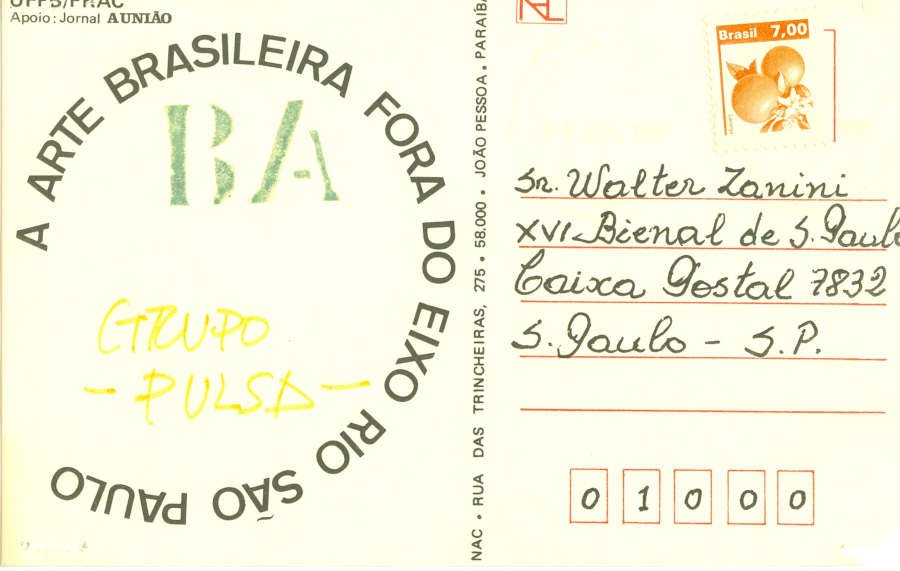 UFPB/PRAC
Apoio: Jornal A UNIÃO
A ARTE BRASILEIRA FORA DO EIXO RIO SÃO PAULO
BA
GRUPO
- PULSA -
NAC • RUA DAS TRINCHEIRAS, 275 • 58.000 • JOÃO PESSOA • PARAÍBA
Brasil 7,00
Sr. Walter Zanini
XVI Bienal de S. Paulo
Caixa Postal 7832
S. Paulo - S.P.
01000